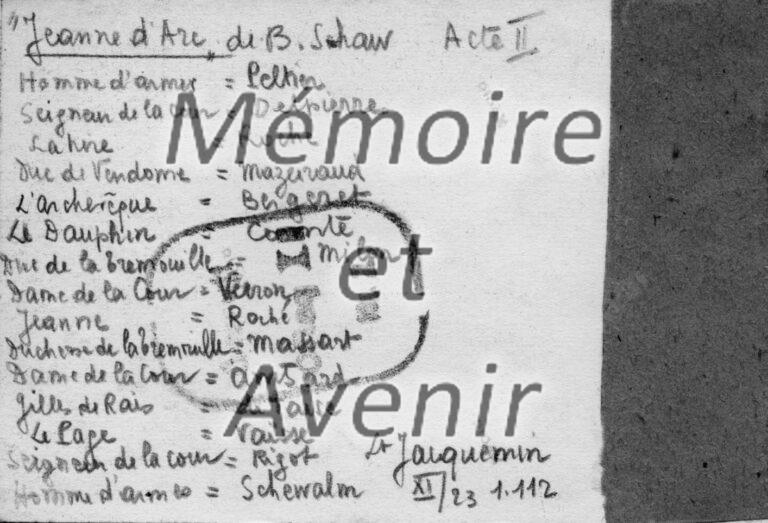 "Jeanne d'Arc" de B. Schaw Acte II
Homme d'armes = Peltier
Seigneur de la cour = Delpierre
Lahire = Roche
Duc de Vendome = Mazeiraud
L'archevêque = Bergeret
Le Dauphin = Comté
Duc de la Tremouille = Milon
Dame de la Cour = Verron
Jeanne = Roche
Duchesse de la Tremouille = Massart
Dame de la Cour =
Gilles de Rais =
Le Page = Vaisse
Seigneur de la cour = Rigot
Homme d'armes = Schewalm
Lt Jacquemin
XI/23 1.112
Mémoire
et
Avenir